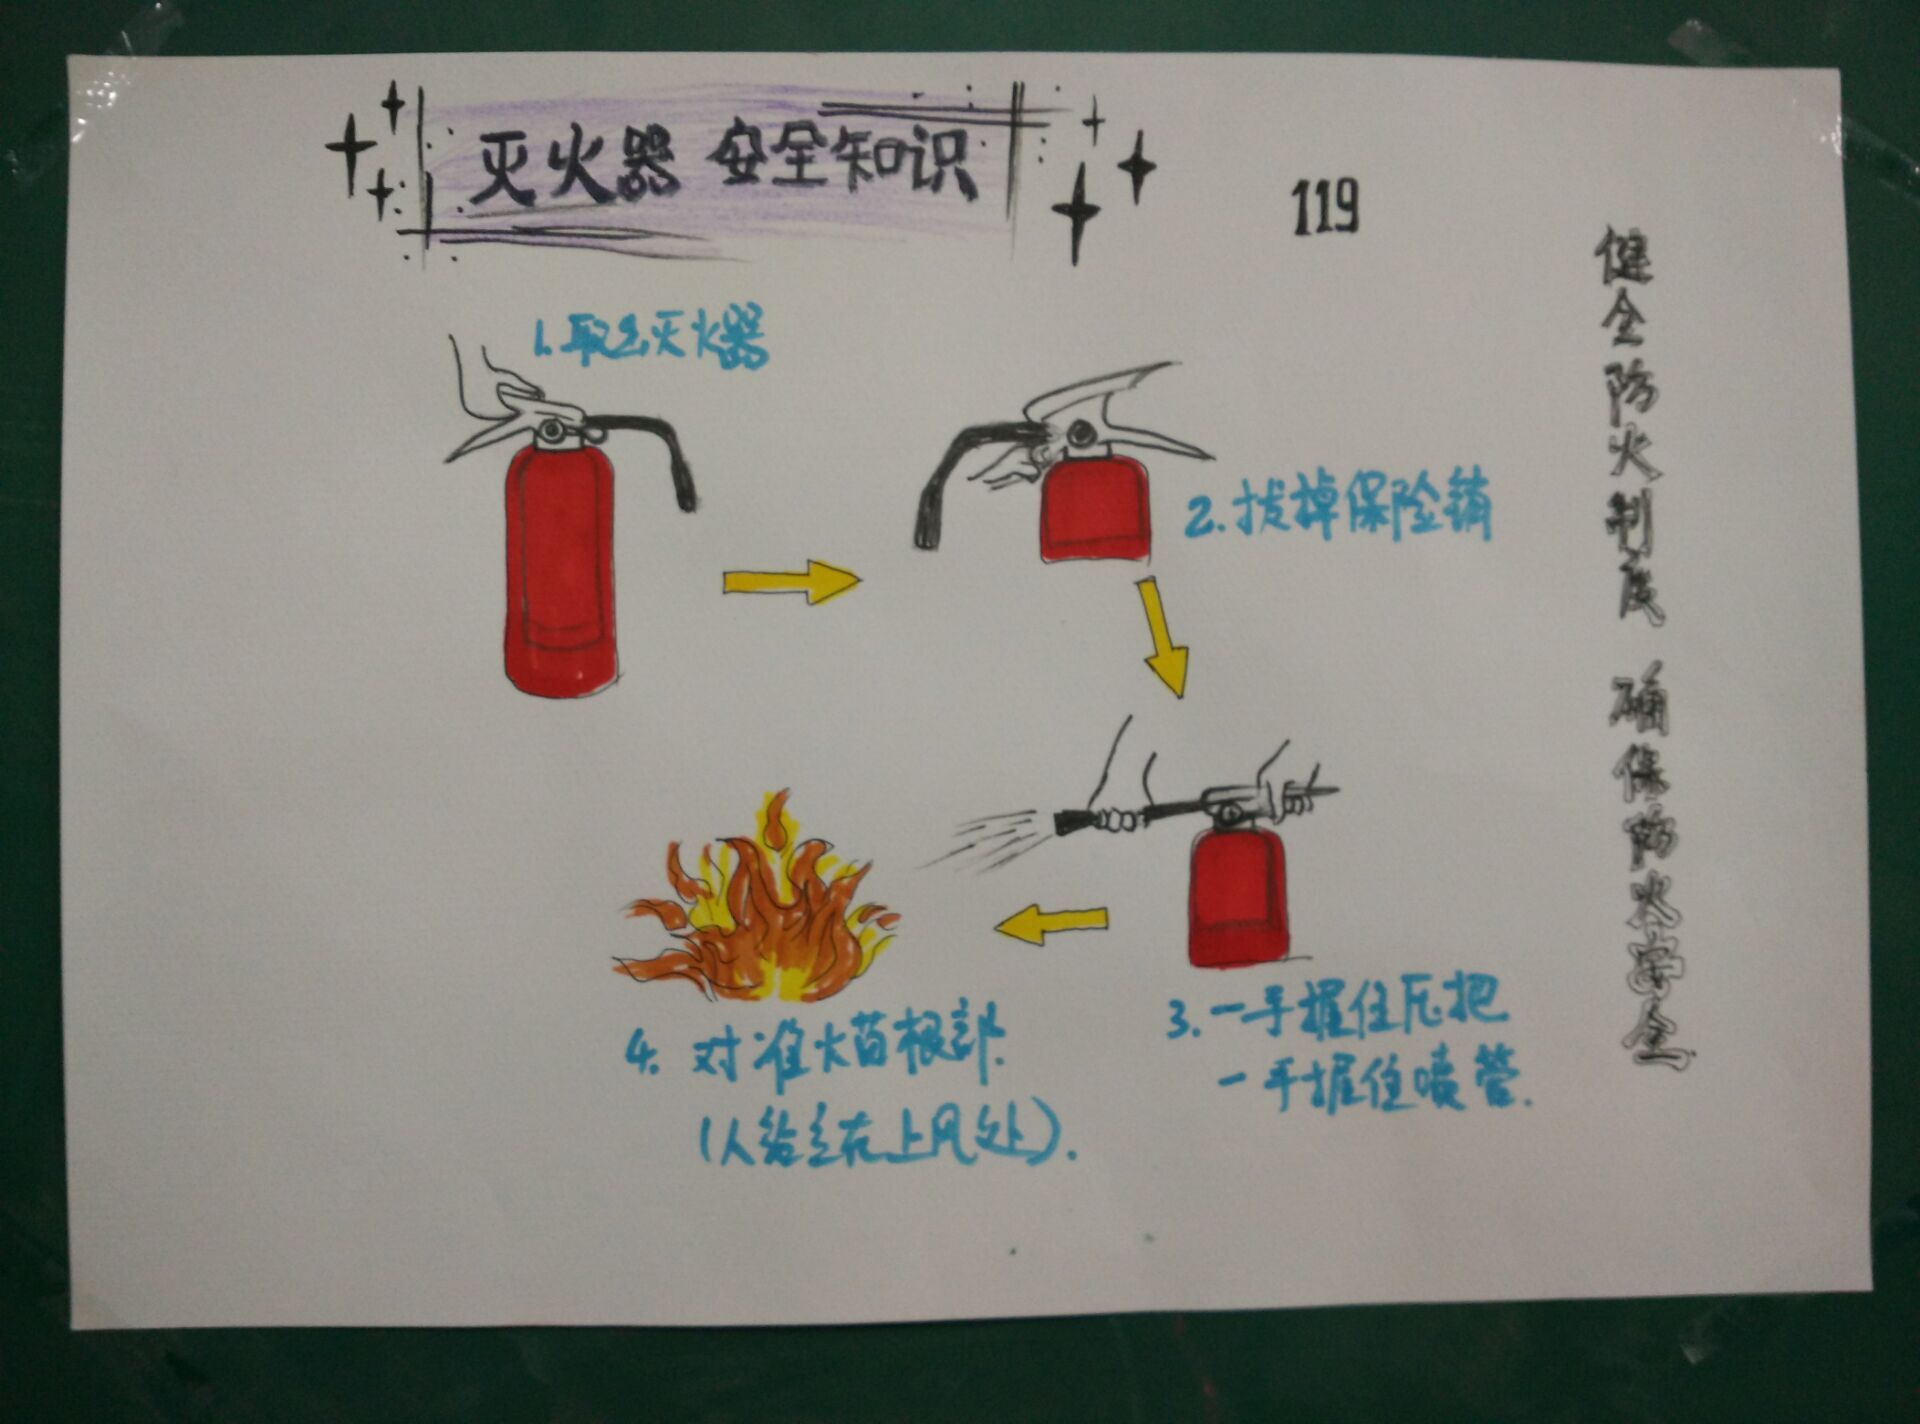 灭火器 安全知识
119
1.取出灭火器
2.拔掉保险销
3.一手握住压把
一手握住喷管.
4.对准火苗根部.
(人站立在上风处).
健全防火制度 确保防火安全